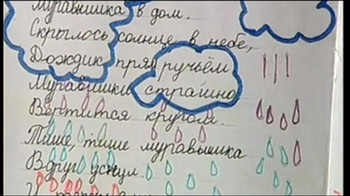 Муравьишка в дом.
Скрылось солнце в небе,
Дождик прял ручьём
Муравьишки страшно
Вертится кругом
Тише, тише муравьишка
Вдруг